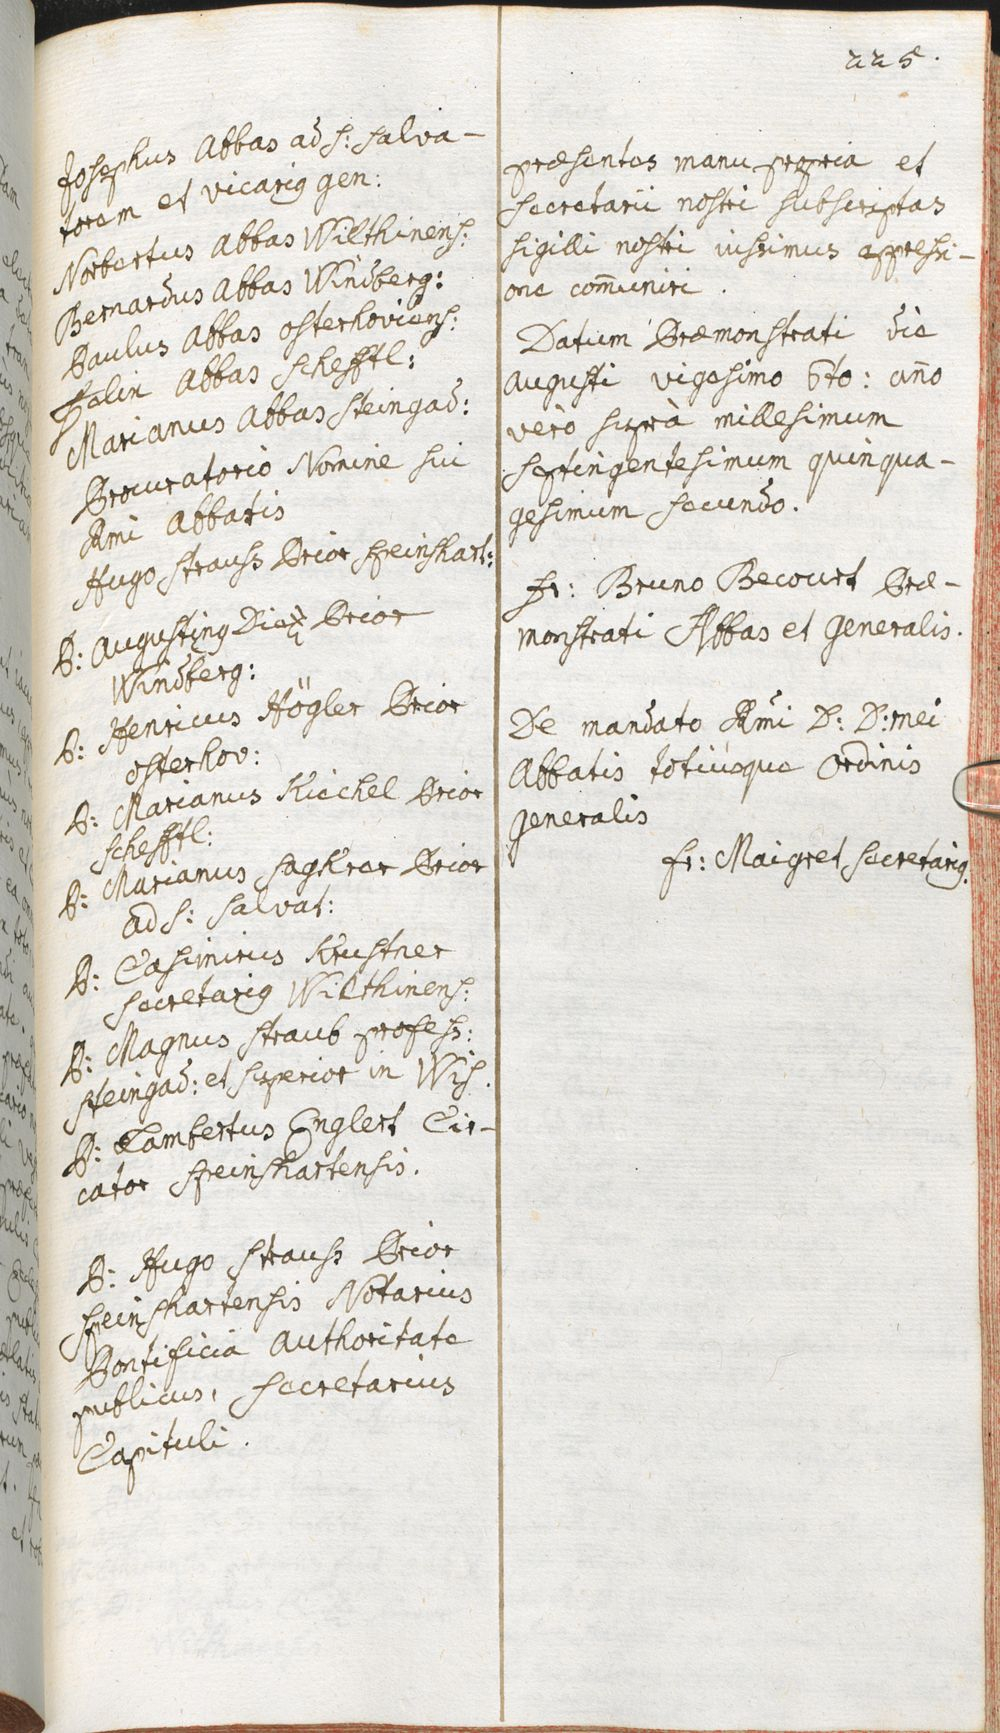 225.
Josephus Abbas ad S: Salva-
torem et vicarig gen:
Norbertus Abbas Wilthinens:
Bernardus Abbas Windberg:
Paulus Abbas osterhoviens:
Felix Abbas Schefftl:
Marianus Abbas Steingad:
Procuratorio Nomine sui
Rmi Abbatis
Hugo Strauss Prior Speinshart:
P: Augusting Prior
Windberg:
P: Henricus Högler Prior
osterhov:
P: Marianus Kiechel Prior
Schefftl:
P: Marianus Sagkrer Prior
ad S: Salvat:
P: Casimirus Krustner
Secretarig Wilthinens:
P: Magnus Straub profess:
Steingad: et Superior in Wis.
P: Lambertus Englert Cir-
cator Speinshartensis.
P: Hugo Strauss Prior
Speinshartensis Notarius
Pontificia Authoritate
publicus, Secretarius
Capituli.
præsentes manu propria et
Secretarii nostri subscriptas
sigilli nostri iussimus appressi-
one com̄uniri.
Datum Præmonstrati die
Augusti vigesimo 6to: an̄o
verò suprà millesimum
Septingentesimum quinqua-
gesimum secundo.
fr: Bruno Becourt Præ-
monstrati Abbas et Generalis.
De mandato Rm̄i D: D: mei
Abbatis totiusque Ordinis
Generalis
fr: Maigret Secretarig.